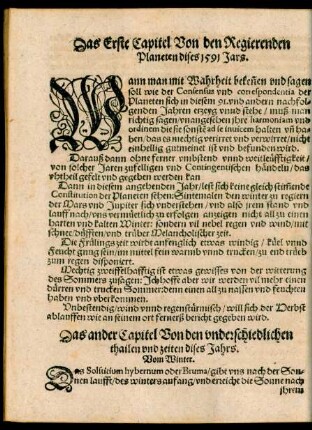 Das Erste Capitel Von den Regierenden
Planeten dises 1591 Jars.
Wann man mit Wahrheit bekeñen vnd sagen
soll wie der Consensus vnd correspondentia der
Planeten sich in diesem 91. vnd andern nachfol-
genden Jahren erzeyg vnnd stehe / muß man
richtig sagen / vnangesehen ihre harmoniam vnd
ordinem die sie sonst ad se inuicem halten vñ ha-
ben / das es nie vnd verwirret / nicht
einhellig gutmeinet ist vnd befunden wird.
Darauß dann ohne ferner vmbstend vnnd weitleufftigkeit /
von solcher Jaren zufelligen vnd Contingentischen händeln / das
vrtheil gefelt vnd gegeben werden kan
Dann in diesem angehenden Jahr / lest sich keine gleich stimēde
Constitution der Planeten sehen: Sintemalen den winter zu regiern
der Mars vnd Jupiter sich vndersteben / vnd also jrem stand vnd
lauff nach / vns vermütlich zu erfolgen anzeigen nicht all zu einen
harten vnd kalten Winter / sondern vil nebel regen vnd wind / mit
schnee / düfften / vnd trüber Melancholischer zeit.
Die Frülings zeit würdt anfenglich etwas windig / küel vnnd
Feucht gnug sein / zu mittel fein warmb vnnd trucken / zu end trüb /
zum regen disponiert.
Mechtig zweiffelhafftig ist etwas gewisses von der witterung
des Sommers zusagen: Ich hoffe aber wir werden vil mehr einen
dürren vnd trucken Sommer denn einen all zu nassen vnd feuchten
haben vnd vberkommen.
Vnbestendig / wind vnnd regenstürmisch / will sich der Herbst
ablauffen wie an seinem ort ferners bericht gegeben wird.
Das ander Capitel Von den vnderschiedlichen
thailen vnd zeiten dises Jahrs.
Vom Winter.
Das Solstitium hybernum oder Bruma / gibt vns nach der Son-
nen laufft / des winters anfang / vnd erreicht die Sonne nach
ihrem